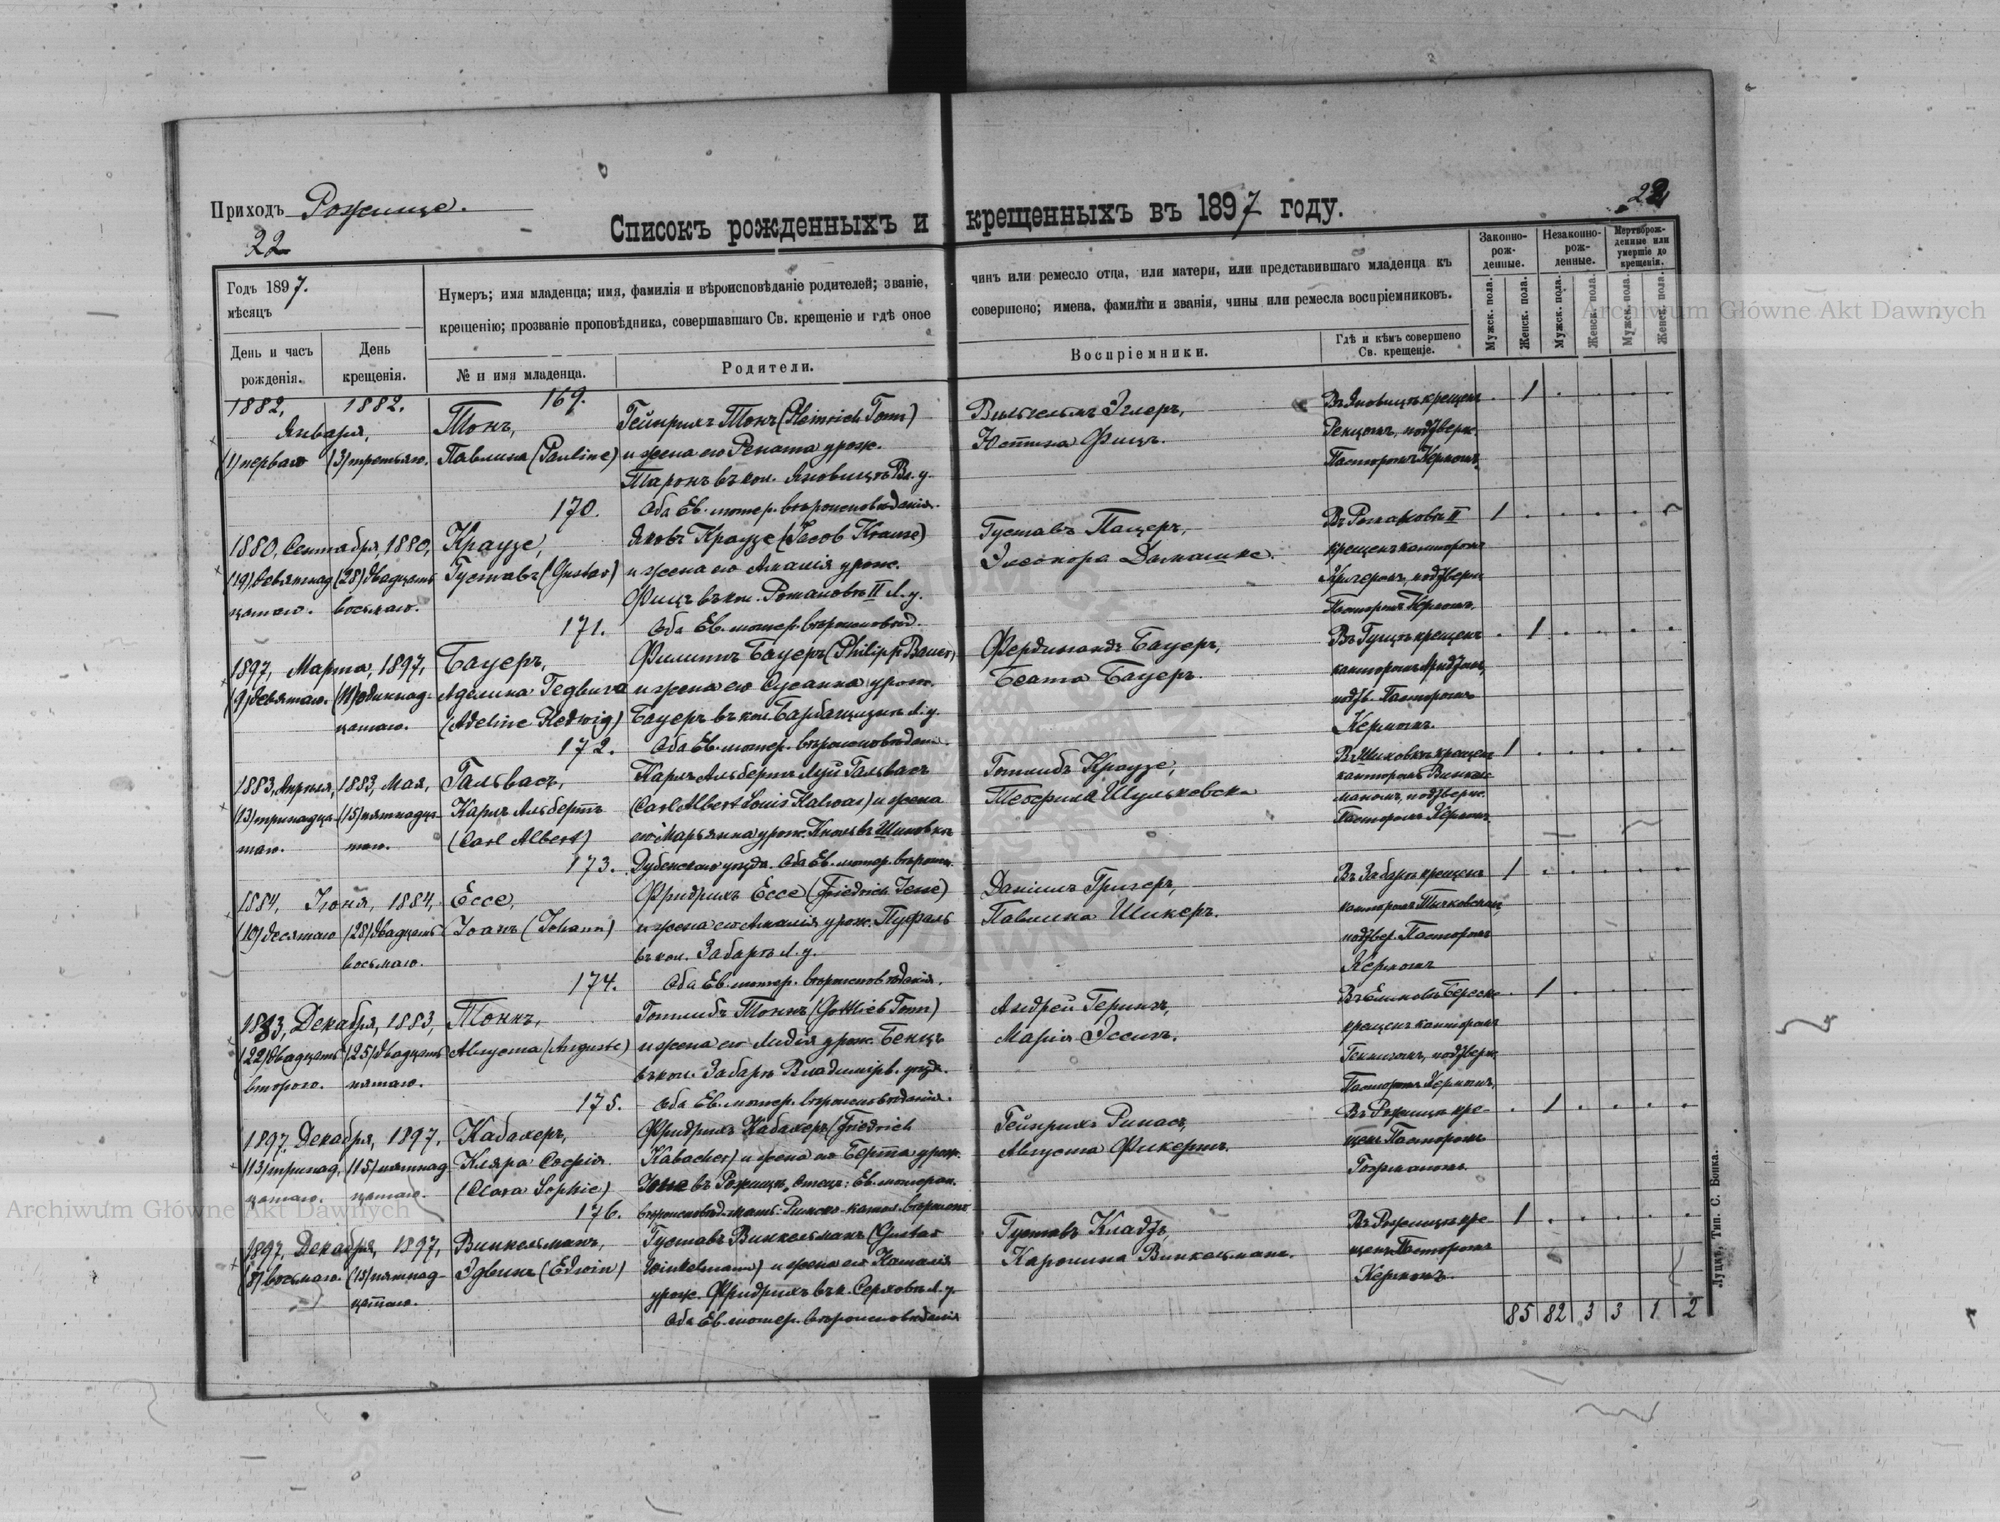 Приходъ Рожище.
22
22
Списокъ рожденныхъ и крещенныхъ въ 1897 году.
Годъ 1897.
мѣсяцъ
Нумеръ; имя младенца; имя, фамилія и вѣроисповѣданіе родителей; званіе,
чинъ или ремесло отца, или матери, или представившаго младенца къ
крещенію; прозваніе проповѣдника, совершавшаго Св. крещеніе и гдѣ оное
совершено; имена, фамиліи и званія, чины или ремесла воспріемниковъ.
День и часъ
рожденія.
День
крещенія.
№ и имя младенца.
Родители.
Воспріемники.
Гдѣ и кѣмъ совершено
Св. крещеніе.
Законно-
рож-
денные.
Незаконно-
рож-
денные.
Мертворож-
денные или
умершіе до
крещенія.
Мужск. пола.
Женск. пола.
Мужск. пола.
Женск. пола.
Мужск. пола.
Женск. пола.
169.
1882, 1882.
Января,
(1) перваго (3) третьяго.
Тонъ,
Павлина (Pauline)
Гейнрихъ Тонъ (Heinrich Tonn)
и жена его Рената урож.
въ кол. Яновицѣ Вл. у.
Оба Ев. лютер. вѣроисповѣданія.
Вильгельмъ Эглеръ,
Юстина Фицъ.
Въ Яновицѣ крещен
подтверж.
Пасторомъ Кермомъ.
1
170.
1880, Сентября, 1880,
(19) девятнад (28) двадцать
цатаго. восьмаго.
Краузе,
Густавъ (Gustav)
Яковъ Краузе (Jacob Krause)
и жена его Амалія урож.
Фицъ въ кол. Рожановкѣ II Л. у.
Оба Ев. лютер. вѣроисповѣд.
Густавъ Пацеръ,
Элеонора
II
крещенъ канторомъ
подтверж.
Пасторомъ Кермомъ.
1
171.
1897, Марта, 1897,
(9) девятаго. (11) одиннад-
цатаго.
Бауеръ,
Аделина Гедвига
(Adeline Hedwig)
Филиппъ Бауеръ (Philipp Bauer)
и жена его Сусанна урож.
Бауеръ въ кол. Л. у.
Оба Ев. лютер. вѣроисповѣдан.
Фердинандъ Бауеръ,
Беата Бауеръ.
крещен
канторомъ
подтв. Пасторомъ
Кермомъ.
1
172.
1883, Апрѣля, 1883, Мая,
(13) тринадца- (15) пятнадца-
таго. таго.
Гальвасъ,
Карлъ Альбертъ
(Carl Albert)
Карлъ Альбертъ Луй Гальвасъ
(Carl Albert Louis Kalwas) и жена
его Марьянна урож. въ Шиловкѣ
Дубенскаго уѣзда. Оба Ев. лютер. вѣроисп.
Готлибъ Краузе,
Шульковска
Въ Шиловкѣ крещен
канторомъ Винкель-
маномъ, подтверж.
Пасторомъ Кермомъ.
1
173.
1884, Іюня, 1884,
(10) десятаго (28) двадцать
восьмаго.
Ессе,
Іоанъ (Johann)
Фридрихъ Ессе (Friedrich Jesse)
и жена его Амалія урож. Пуфаль
въ кол. Забара Л. у.
Оба Ев. лютер. вѣроисповѣданія.
Даніилъ Григеръ,
Павлина Шикеръ.
Въ Забарѣ крещенъ
канторомъ
подтвер. Пасторомъ
Кермомъ
1
174.
1883, Декабря, 1883,
(22) двадцать (25) двадцать
втораго. пятаго.
Тоннъ,
Августа (Auguste)
Готлибъ Тоннъ (Gottlieb Tonn)
и жена его Лидія урож. Бенцъ
въ кол. Забара Владимірв. уѣзд.
Оба Ев. лютер. вѣроисповѣданія.
Андрей Герингъ,
Марія
крещенъ канторомъ
подтверж.
Пасторомъ Кермомъ.
1
175.
1897, Декабря, 1897,
(13) тринад- (15) пятнад
цатаго. цатаго.
Кабахеръ,
Клара Софія.
(Clara Sophie)
Фридрихъ Кабахеръ (Friedrich
Kabacher) и жена его Берта урож.
въ Рожищѣ. Отецъ: Ев. лютеран.
вѣроисповѣд. мать: Римск.-катол. вѣроисп.
Гейнрихъ Ринасъ,
Августа Фикертъ.
Въ Рожищѣ кре-
щен. Пасторомъ
1
176.
1897, Декабря, 1897,
(8) восьмаго. (15) пятнад-
цатаго.
Винкельманъ,
Эдвинъ (Edwin)
Густавъ Винкельманъ (Gustav
Winkelmann) и жена его
урож. Фридрихъ въ к. Серховѣ Л. у.
Оба Ев. лютер. вѣроисповѣданія
Густавъ Кладтъ,
Каролина Винкельманъ.
Въ Рожищѣ кре-
щен. Пасторомъ
Кермомъ.
1
85 82 3 3 1 2
Луцкъ, Тип. С. Бонка.
Archiwum Główne Akt Dawnych
Archiwum Główne Akt Dawnych